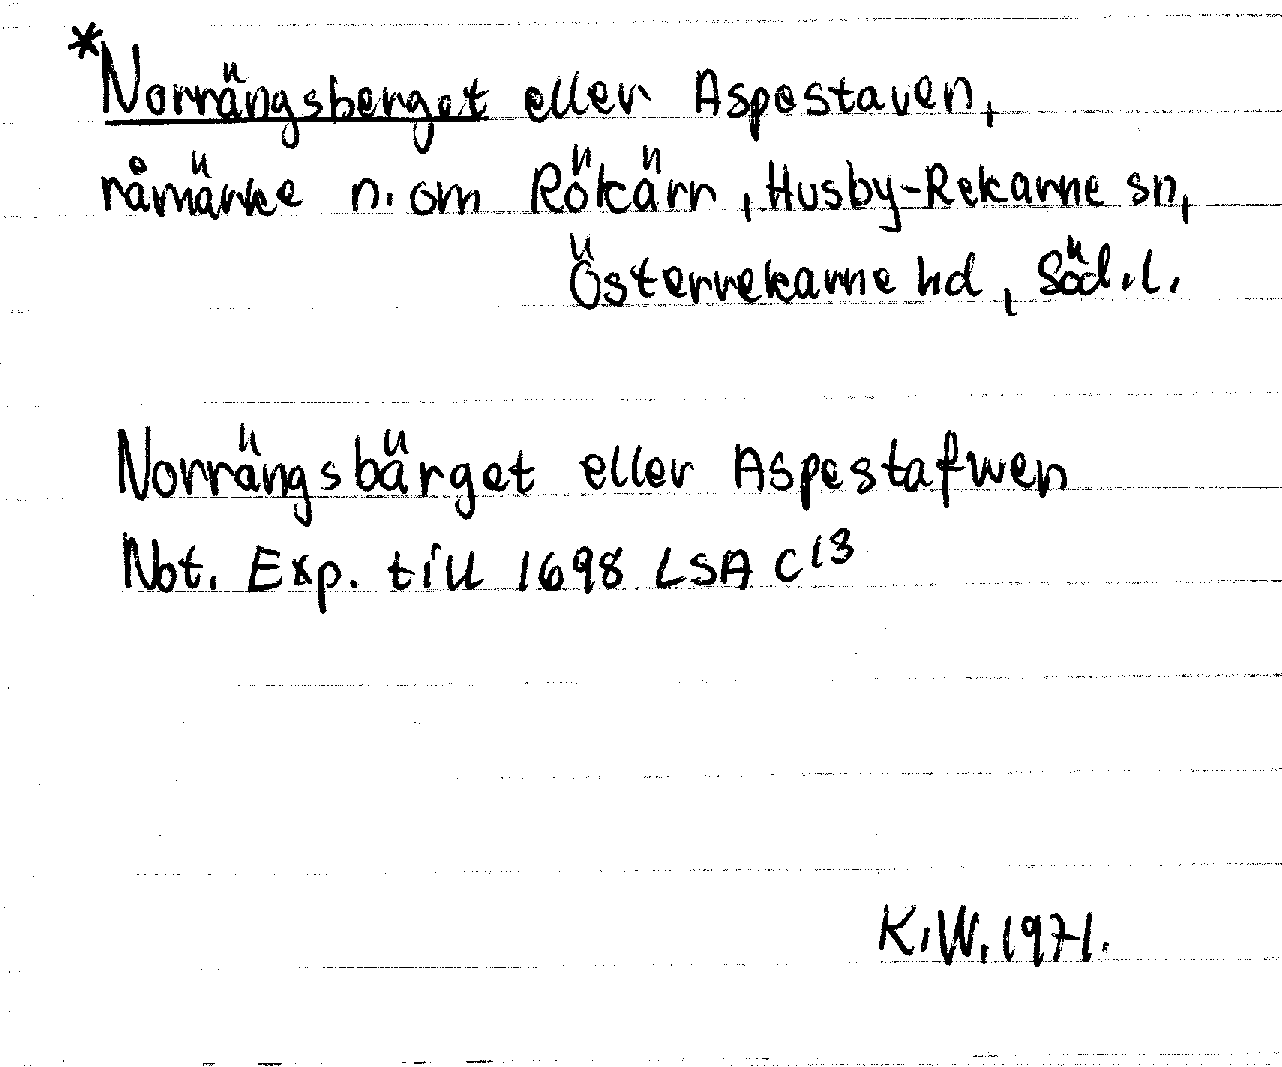 *Norrängsberget eller Aspestaven,
råmärke n. om Rökärr, Husby-Rekarne sn,
Österrekarne hd, Söd.l.
Norrängsbärget eller Aspestafwen
Not. Exp. till 1698 LSA C13
K.W. 1971.